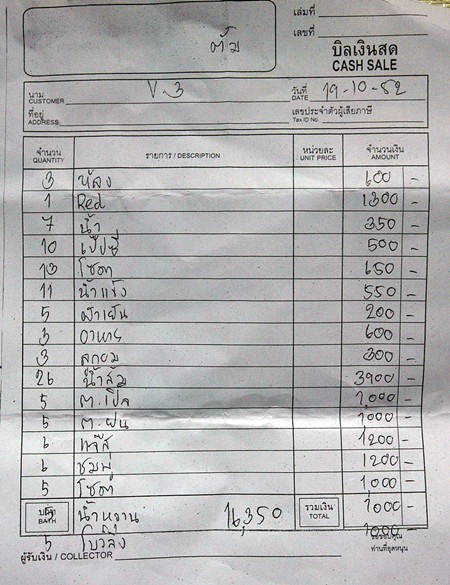 เล่มที่
ต้ม
เลขที่
บิลเงินสด
CASH SALE
นาม CUSTOMER V-3
วันที่ DATE 19-10-52
ที่อยู่ ADDRESS
เลขประจำตัวผู้เสียภาษี Tax ID No.
จำนวน QUANTITY รายการ / DESCRIPTION หน่วยละ UNIT PRICE จำนวนเงิน AMOUNT
3 600 -
1 Red 1300 -
7 น้ำ 350 -
10 เป๊ปซี่ 500 -
13 โซดา 650 -
11 น้ำแข็ง 550 -
5 ผ้าเย็น 200 -
3 อาหาร 600 -
3 ลูกอม 300 -
26 น้ำส้ม 3900 -
5 ต.เปิ้ล 1,000 -
5 ต.ฝน 1000 -
6 1200 -
6 ชมพู่ 1200 -
5 โซดา 1000 -
บาท BATH น้ำหวาน 16,350 รวมเงิน TOTAL 1000 -
5 1000 -
ขอขอบคุณ
ผู้รับเงิน / COLLECTOR
ท่านที่อุดหนุน